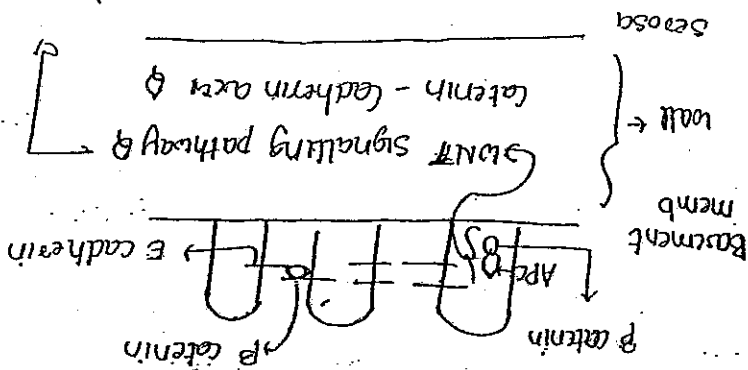 β catenin
β catenin
APC
E cadherin
Basement
memb
WNT signalling pathway
wall
Catenin - Cadherin axis
serosa